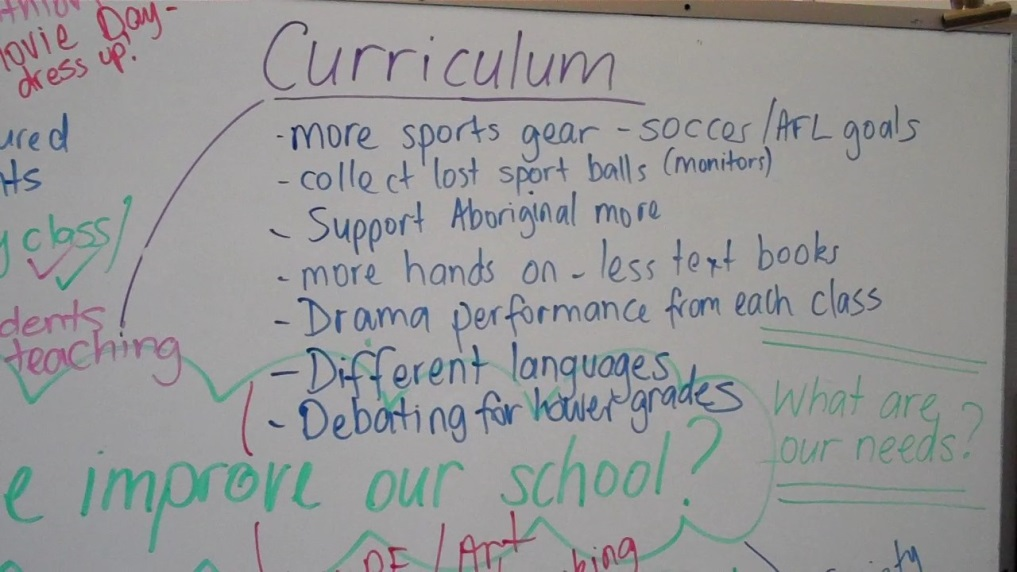 Movie Day-
dress up!
Curriculum
- more sports gear - soccer/AFL goals
- collect lost sport balls (monitors)
- Support Aboriginal more
- more hands on - less text books
- Drama performance from each class
- Different languages
- Debating for lower grades
class/
teaching
What are
our needs?
e improve our school?
PE/Art